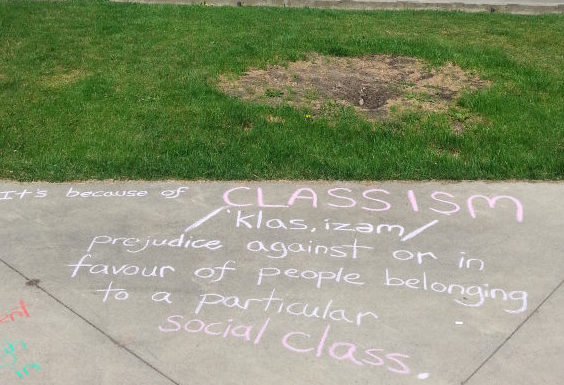 It's because of CLASSISM
/'klas,izəm/
prejudice against or in
favour of people belonging
to a particular
social class.